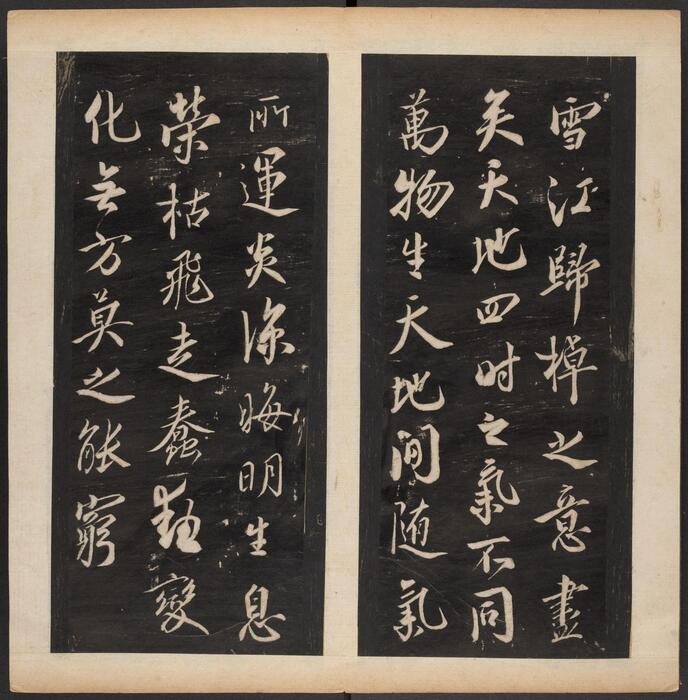 雪江歸棹之意盡
矣天地四时之氣不同
萬物生天地間随氣
所運炎涼晦明生息
榮枯飛走蠢動變
化无方莫之能窮